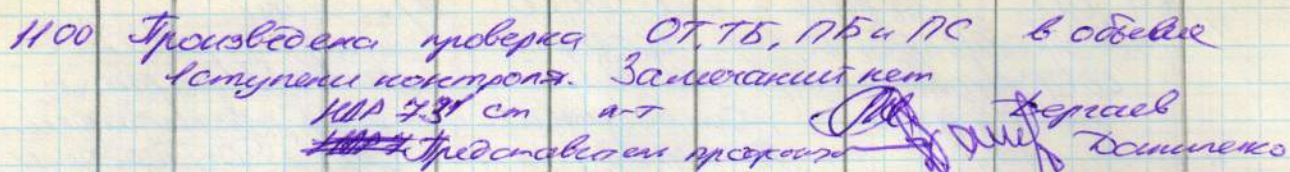 1100 Произведена проверка ОТ, ТБ, ПБ и ПС в объёме
1 ступени контроля. Замечаний нет
ст л-т Дергаев
Представитель профкома Даниленко